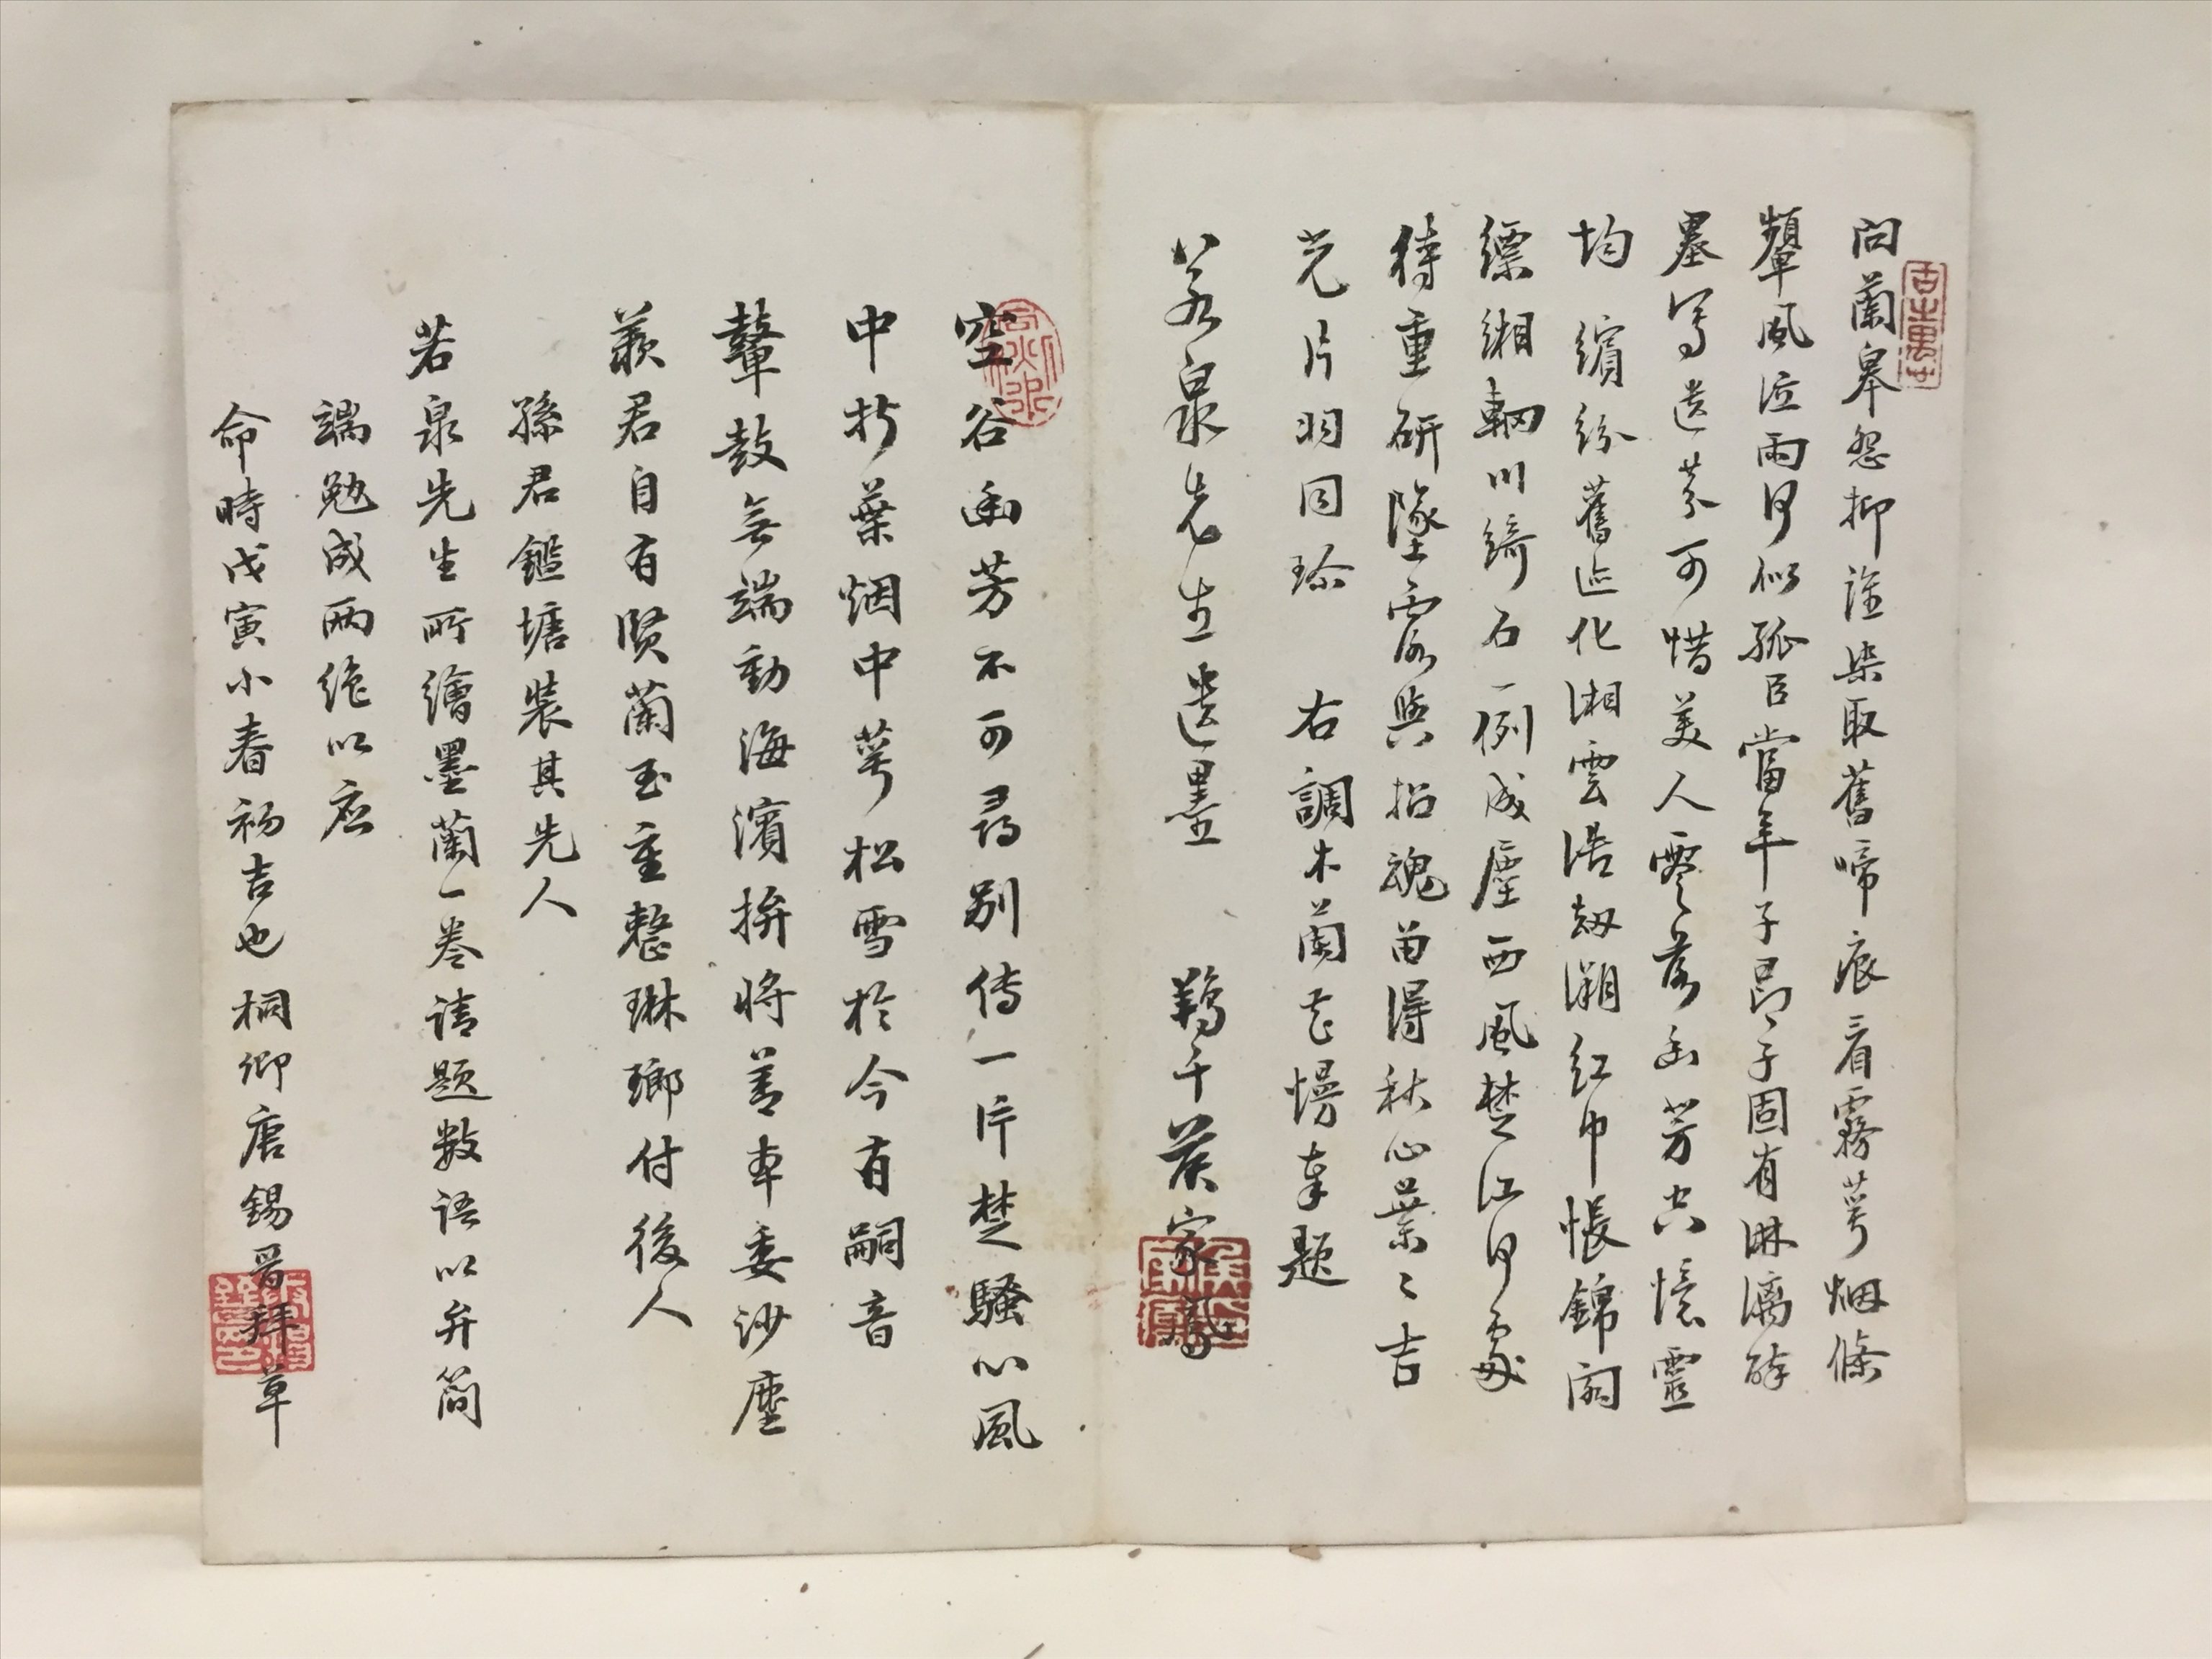 問蘭皋怨抑誰染取舊啼痕看霧萼烟條
顰風泣雨何似孤臣當年子昂子固有淋漓醉
墨寫遺芬可惜美人零落幽芳空憶靈
均 繽紛舊迹化湘雲浩劫溯紅巾悵錦
縹緗輞川綺石一例成塵西風楚江何處
待重研墜露與招魂留得秋心葉葉吉
光片羽同珍 右調木蘭花慢奉題
若泉先生遺墨 鶴千侯家鳳
空谷幽芳不可尋別傳一片楚騷心風
中折葉烟中萼松雪於今有嗣音
鼙鼓無端動海濱拚將善本委沙塵
羨君自有賢蘭玉重整琳瑯付後人
孫君鑑塘裝其先人
若泉先生所繪墨蘭一卷請題數語以弁簡
端勉成兩絕以應
命時戊寅小春初吉也桐卿唐錫晉拜草